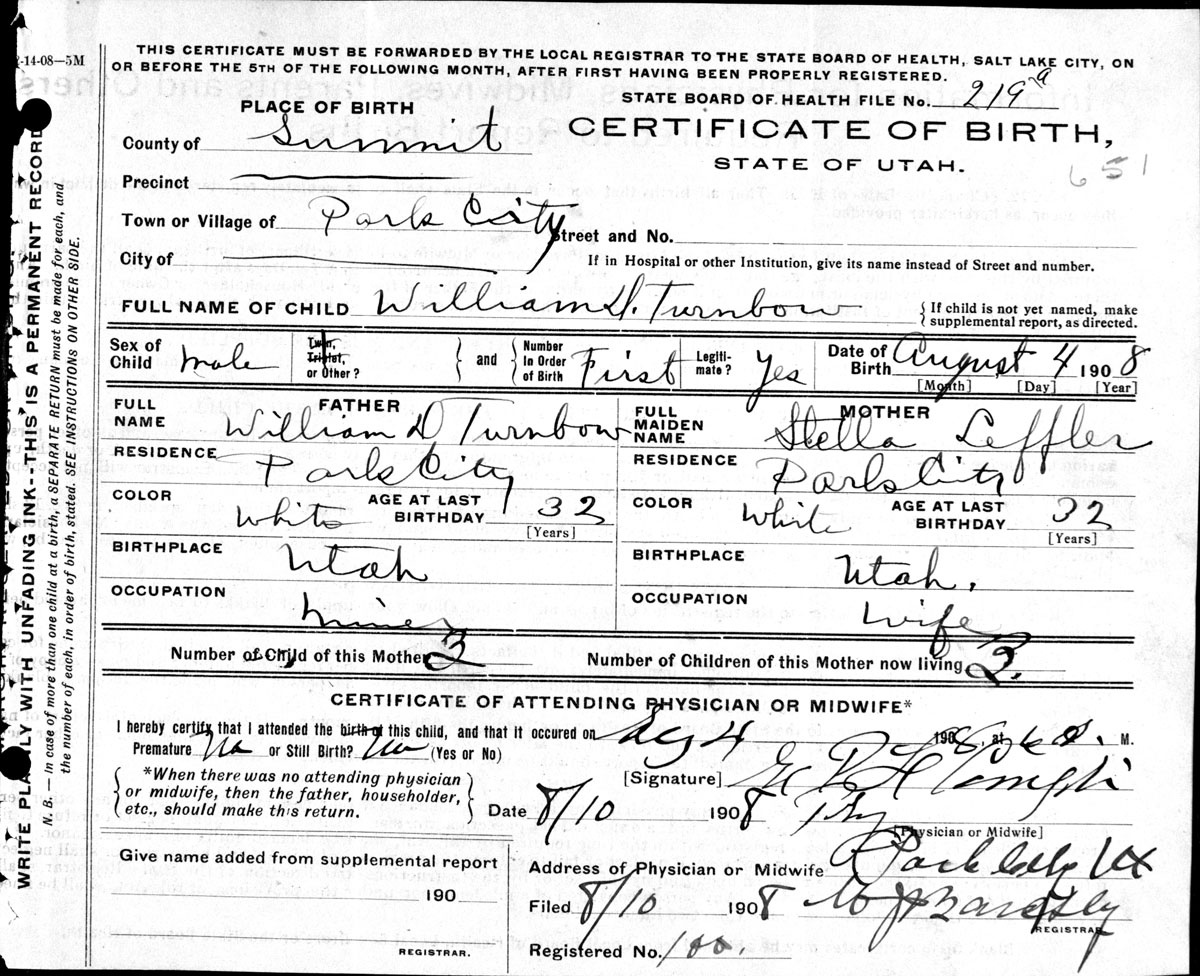 2-14-08—5M
THIS CERTIFICATE MUST BE FORWARDED BY THE LOCAL REGISTRAR TO THE STATE BOARD OF HEALTH, SALT LAKE CITY, ON
OR BEFORE THE 5TH OF THE FOLLOWING MONTH, AFTER FIRST HAVING BEEN PROPERLY REGISTERED.
PLACE OF BIRTH
STATE BOARD OF HEALTH FILE No. 219 a
County of Summit
CERTIFICATE OF BIRTH,
STATE OF UTAH.
651
Precinct
Town or Village of Park City
Street and No.
City of
If in Hospital or other Institution, give its name instead of Street and number.
FULL NAME OF CHILD William D. Turnbow
{ If child is not yet named, make
supplemental report, as directed.
Sex of Child male
Twin, Triplet, or Other?
and
Number In Order of Birth First
Legiti-mate? Yes
Date of Birth August 4 1908
[Month] [Day] [Year]
FATHER
FULL NAME William D Turnbow
RESIDENCE Park City
COLOR White
AGE AT LAST BIRTHDAY 32
[Years]
BIRTHPLACE Utah
OCCUPATION Miner
MOTHER
FULL MAIDEN NAME Stella Leffler
RESIDENCE Park City
COLOR White
AGE AT LAST BIRTHDAY 32
[Years]
BIRTHPLACE Utah.
OCCUPATION Wife
Number of Child of this Mother 3
Number of Children of this Mother now living 3.
CERTIFICATE OF ATTENDING PHYSICIAN OR MIDWIFE*
I hereby certify that I attended the birth of this child, and that it occured on 4 1908, at M.
Premature No or Still Birth? No (Yes or No)
{ *When there was no attending physician
or midwife, then the father, householder,
etc., should make this return. }
[Signature]
Date 8/10 1908
[Physician or Midwife]
Give name added from supplemental report
190
REGISTRAR.
Address of Physician or Midwife Park City Ut
Filed 8/10 1908
REGISTRAR
Registered No. 100.
WRITE PLAINLY WITH UNFADING INK—THIS IS A PERMANENT RECORD
N. B.—In case of more than one child at a birth, a SEPARATE RETURN must be made for each, and
the number of each, in order of birth, stated. SEE INSTRUCTIONS ON OTHER SIDE.